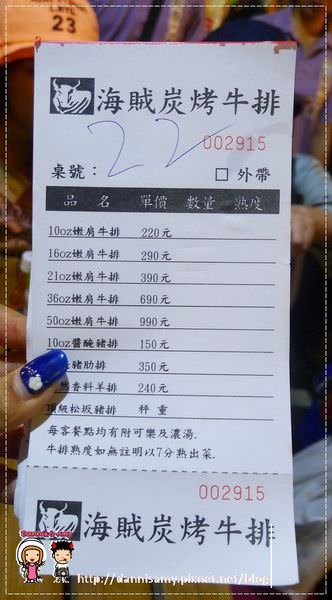 23
海賊炭烤牛排
22
002915
桌號：
□ 外帶
品名 單價 數量 熟度
10oz嫩肩牛排 220元
16oz嫩肩牛排 290元
21oz嫩肩牛排 390元
36oz嫩肩牛排 690元
50oz嫩肩牛排 990元
10oz醬醃豬排 150元
豬肋排 350元
香料羊排 240元
頂級松坂豬排 秤重
每客餐點均有附可樂及濃湯.
牛排熟度如無註明以7分熟出菜.
002915
海賊炭烤牛排
http://dannisamy.pixnet.net/blog